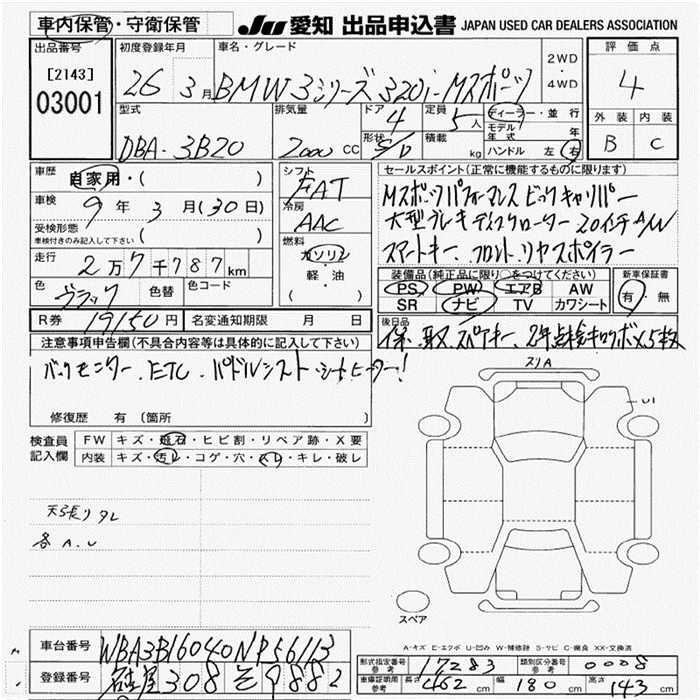 車内保管・守衛保管
JU 愛知 出品申込書 JAPAN USED CAR DEALERS ASSOCIATION
出品番号
[2143]
03001
初度登録年月
26年 3月
車名・グレード
BMW 3シリーズ 320i-Mスポーツ
2WD
・
4WD
評価点
4
外装 内装
B C
型式
DBA-3B20
排気量
2000 CC
ドア
4
形状
S/D
定員
5人
積載
kg
ディーラー・並行
モデル年式 年
ハンドル 左 右
車歴
自家用・( )
車検
9年 3月(30日)
受検形態
車検付きのみ記入して下さい ( )
走行
2万7千787km
色
ブラック
色替
色コード
R券 19150円 名変通知期限 月 日
シフト
FAT
冷房
AAC
燃料
ガソリン
軽・油
( )
セールスポイント(正常に機能するものに限ります)
Mスポーツパフォーマンス ビッグキャリパー
大型ブレーキディスクローター 20インチA/W
スマートキー、フロント、リヤスポイラー
装備品(純正品に限り○をつけてください)
PS PW エアB AW
SR ナビ TV カワシート
新車保証書
有・無
後日品
保、取、スペアキー、2年点検キロクボ×5枚
注意事項申告欄(不具合内容等は具体的に記入して下さい)
バックモニター、ETC、パドルシフト、シートヒーター!
修復歴 有(箇所 )
検査員記入欄
FW キズ・飛石・ヒビ割・リペア跡・X要
内装 キズ・汚レ・コゲ・穴・スレ・キレ・破レ
天張りタレ
各A.U
スリA
U1
スペア
A-キズ E-エクボ U-凹み W-補修跡 S-サビ C-腐食 XX-交換済
車台番号 WBA3B16040NP56113
登録番号 名古屋 308 そ 9882
形式指定番号 参考 17283 類別区分番号 参考 0008
車庫証明用 参考 長さ 462 cm 幅 180 cm 高さ 143 cm